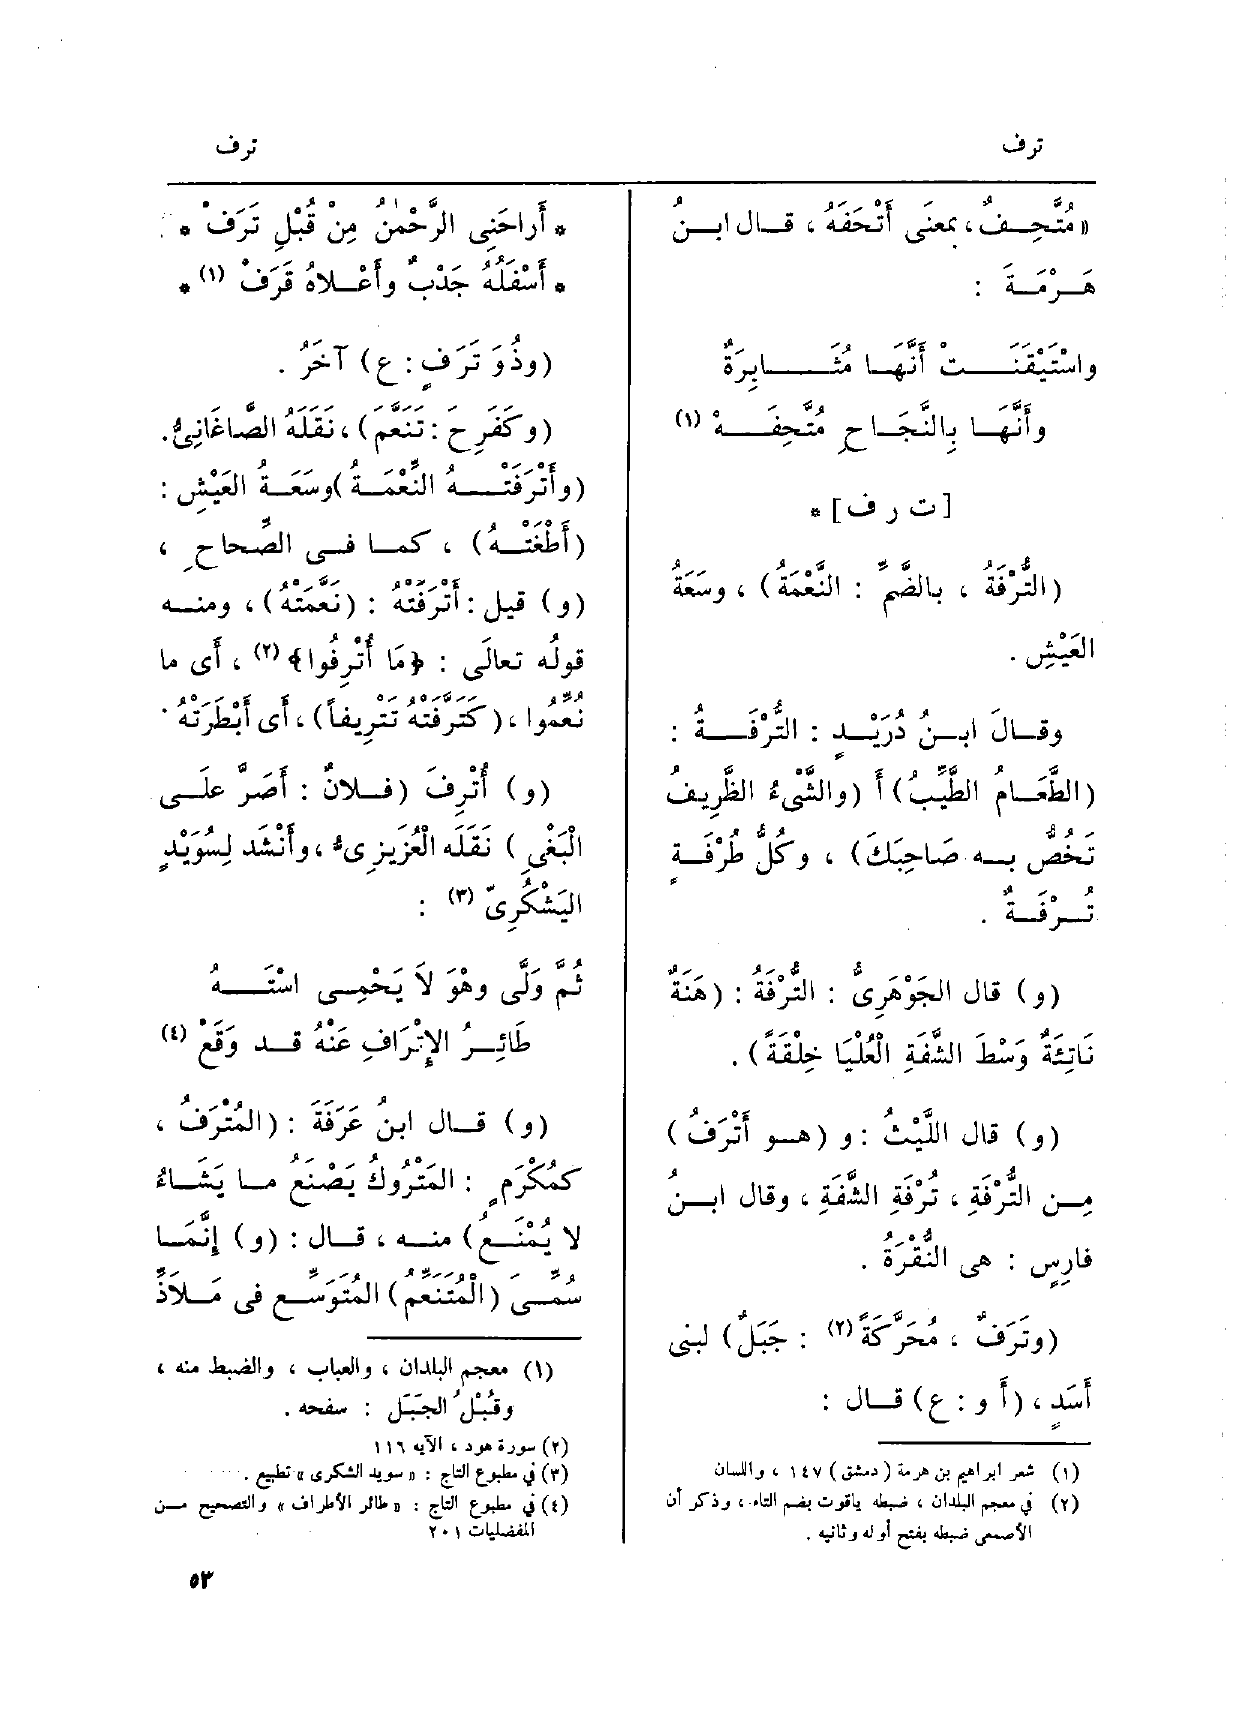 ترف
ترف
«مُتَّحِفٌ، بمعنى أَتْحَفَهُ ، قال ابنُ
هَرْمَةَ :
واسْتَيْقَنَتْ أَنَّهَا مُثَابِرَةٌ
وأَنَّهَا بِالنَّجَاحِ مُتَّحِفَهْ (١)
[ت ر ف] *
(التُّرْفَةُ ، بالضَّمِّ : النَّعْمَةُ) ، وسَعَةُ
العَيْشِ .
وقالَ ابنُ دُرَيْدٍ : التُّرْفَةُ :
(الطَّعَامُ الطَّيِّبُ) أَ (والشَّىْءُ الظَّرِيفُ
تَخُصُّ به صَاحِبَكَ) ، وكُلُّ طُرْفَةٍ
تُرْفَةٌ .
(و) قال الجَوْهَرِىُّ : التُّرْفَةُ : (هَنَةٌ
نَاتِئَةٌ وَسْطَ الشَّفَةِ الْعُلْيَا خِلْقَةً) .
(و) قال اللَّيْثُ : و (هو أَتْرَفُ)
مِن التُّرْفَةِ ، تُرْفَةِ الشَّفَةِ ، وقال ابنُ
فارِسٍ : هى النُّقْرَةُ .
(وتَرَفٌ ، مُحَرَّكَةً (٢) : جَبَلٌ) لبنى
أَسَدٍ ، (أَ و : ع) قال :
(١) شعر ابراهيم بن هرمة (دمشق) ١٤٧ ، واللسان
(٢) في معجم البلدان ، ضبطه ياقوت بضم التاء ، وذكر أن
الأصمعى ضبطه بفتح أوله وثانيه .
* أَراحَنِى الرَّحْمٰنُ مِنْ قُبْلِ تَرَفْ *
* أَسْفَلُهُ جَدْبٌ وأَعْلاهُ قَرَفْ (١) *
(وذُو تَرَفٍ : ع) آخَرُ .
(وكَفَرِحَ : تَنَعَّمَ) ، نَقَلَهُ الصَّاغَانِىُّ.
(وأَتْرَفَتْهُ النَّعْمَةُ) وسَعَةُ العَيْشِ :
(أَطْغَتْهُ) ، كما فى الصِّحاحِ ،
(و) قيل : أَتْرَفَتْهُ : (نَعَّمَتْهُ) ، ومنه
قولُه تعالَى : ﴿مَا أُتْرِفُوا﴾ (٢) ، أَى ما
نُعِّمُوا ، (كَتَرَّفَتْهُ تَتْرِيفاً) ، أَى أَبْطَرَتْهُ .
(و) أُتْرِفَ (فلانٌ : أَصَرَّ على
الْبَغْىِ) نَقَلَه الْعُزَيْزِىُّ ، وأَنْشَد لِسُوَيْدٍ
اليَشْكُرِىِّ (٣) :
ثُمَّ وَلَّى وهْوَ لاَ يَحْمِى اسْتَهُ
طَائِرُ الإِتْرَافِ عَنْهُ قد وَقَعْ (٤)
(و) قال ابنُ عَرَفَةَ : (المُتْرَفُ ،
كمُكْرَمٍ : المَتْرُوكُ يَصْنَعُ ما يَشَاءُ
لا يُمْنَعُ) منه ، قال : (و) إِنَّمَا
سُمِّىَ (الْمُتَنَعِّمُ) المُتَوَسِّع فى مَلاَذِّ
(١) معجم البلدان ، والعباب ، والضبط منه ،
وقُبْلُ الجَبَلِ : سفحه .
(٢) سورة هود ، الآيه ١١٦
(٣) في مطبوع التاج : «سويد الشكرى» تطبيع .
(٤) في مطبوع التاج : «طائر الأطراف» والتصحيح من
المفضليات ٢٠١
٥٣